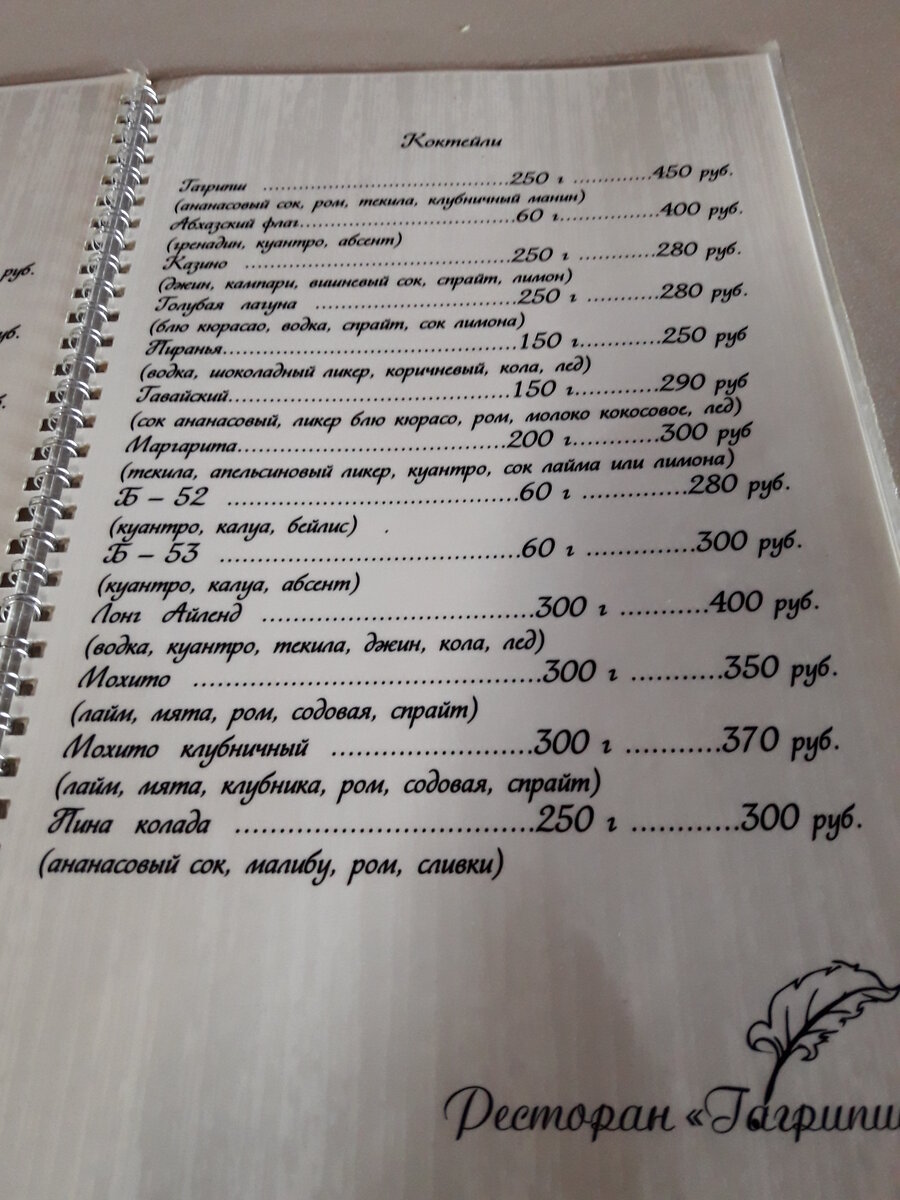 руб.
уб.
б.
Коктейли
Гагрипш ........................................250 г .............450 руб.
(ананасовый сок, ром, текила, клубничный манин)
Абхазский флаг...................................60 г................400 руб.
(гренадин, куантро, абсент)
Казино ...........................................250 г .............280 руб.
(джин, кампари, вишневый сок, спрайт, лимон)
Голубая лагуна ...............................250 г ............280 руб.
(блю кюрасао, водка, спрайт, сок лимона)
Пиранья...........................................150 г.............250 руб
(водка, шоколадный ликер, коричневый, кола, лед)
Гавайский.........................................150 г.............290 руб
(сок ананасовый, ликер блю кюрасо, ром, молоко кокосовое, лед)
Маргарита.......................................200 г.............300 руб
(текила, апельсиновый ликер, куантро, сок лайма или лимона)
Б – 52 .........................................60 г ..............280 руб.
(куантро, калуа, бейлис) .
Б – 53 .........................................60 г ..............300 руб.
(куантро, калуа, абсент)
Лонг Айленд ...................................300 г ...........400 руб.
(водка, куантро, текила, джин, кола, лед)
Мохито ..........................................300 г ...........350 руб.
(лайм, мята, ром, содовая, спрайт)
Мохито клубничный ........................300 г ...........370 руб.
(лайм, мята, клубника, ром, содовая, спрайт)
Пина колада ...................................250 г ............300 руб.
(ананасовый сок, малибу, ром, сливки)
Ресторан «Гагрипш